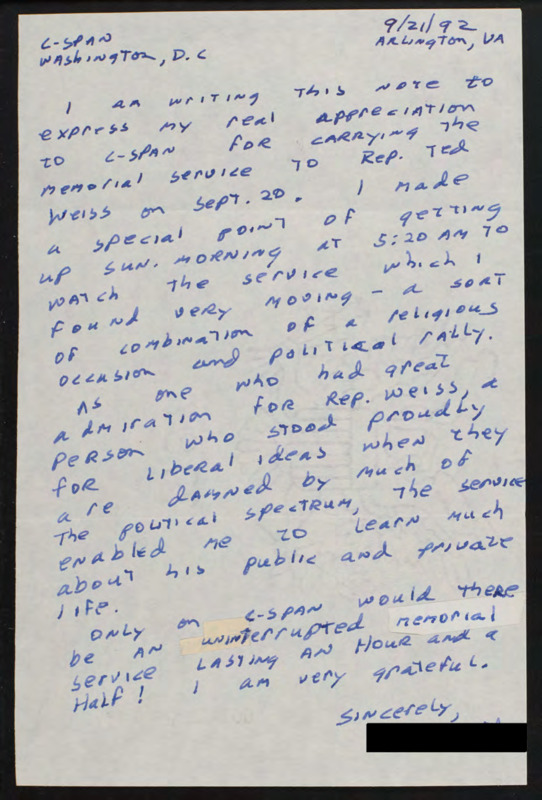 C-SPAN
Washington, D.C
9/21/92
Arlington, VA
I am writing this note to
express my real appreciation
to C-SPAN for carrying the
memorial service to Rep. Ted
Weiss on Sept. 20. I made
a special point of getting
up Sun. morning at 5:20 AM to
watch the service which I
found very moving - a sort
of combination of a religious
occasion and political rally.
As one who had great
admiration for Rep. Weiss, a
person who stood proudly
for liberal ideas when they
are damned by much of
the political spectrum, the service
enabled me to learn much
about his public and private
life.
Only on C-SPAN would there
be an uninterrupted memorial
service lasting an hour and a
half! I am very grateful.
Sincerely,